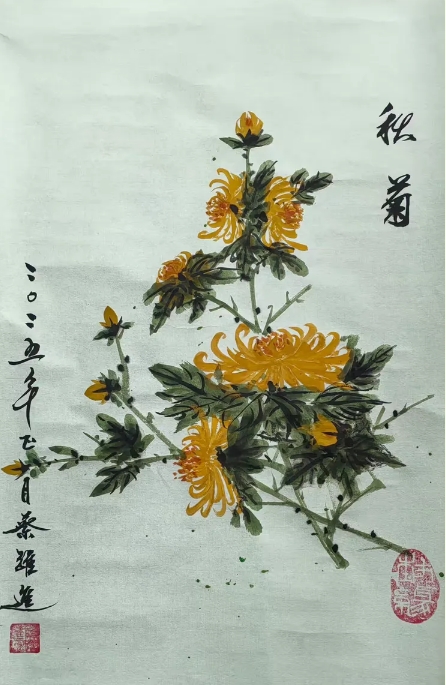 秋菊
二〇二五年正月蔡躍進